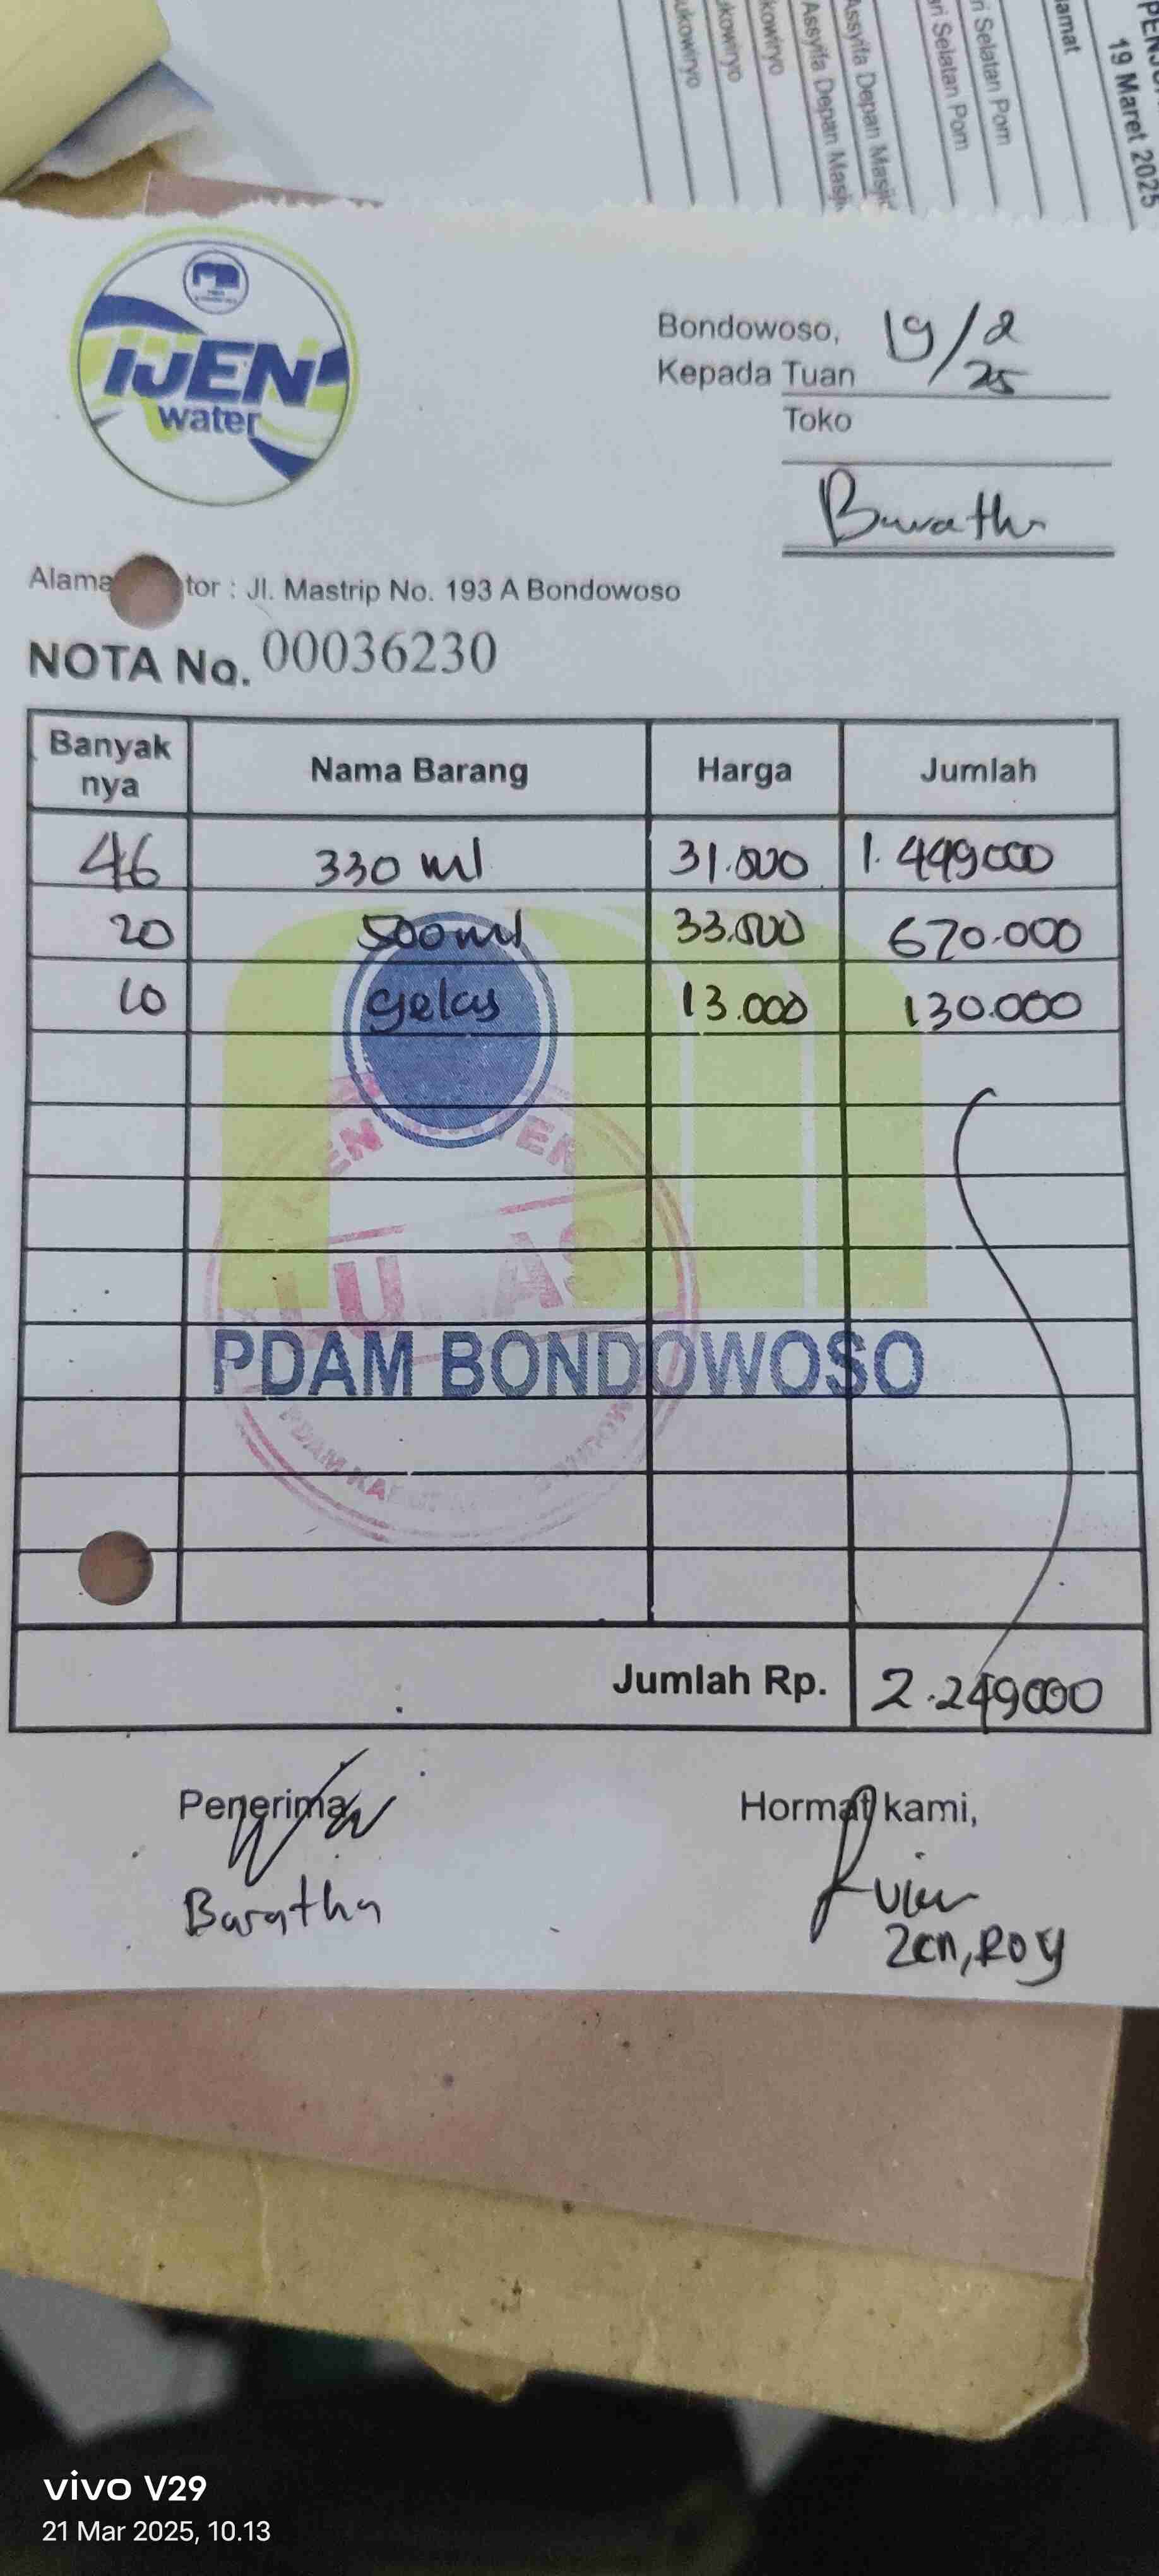 PENJ
19 Maret 2025
lamat
ri Selatan Pom
ri Selatan Pom
Assyifa Depan Masjid
Assyifa Depan Masji
kowiryo
ukowiryo
ukowiryo
IJEN
water
Bondowoso, 19/2
25
Kepada Tuan
Toko
Alama tor : Jl. Mastrip No. 193 A Bondowoso
NOTA No. 00036230
Banyak nya Nama Barang Harga Jumlah
46 330 ml 31.500 1.449000
20 500ml 33.500 670.000
10 gelas 13.000 130.000
IJEN WATER
LUNAS
PDAM BONDOWOSO
PDAM KAB
Jumlah Rp. 2.249000
Penerima Hormat kami,
Baratha
Zen, Roy
vivo V29
21 Mar 2025, 10.13